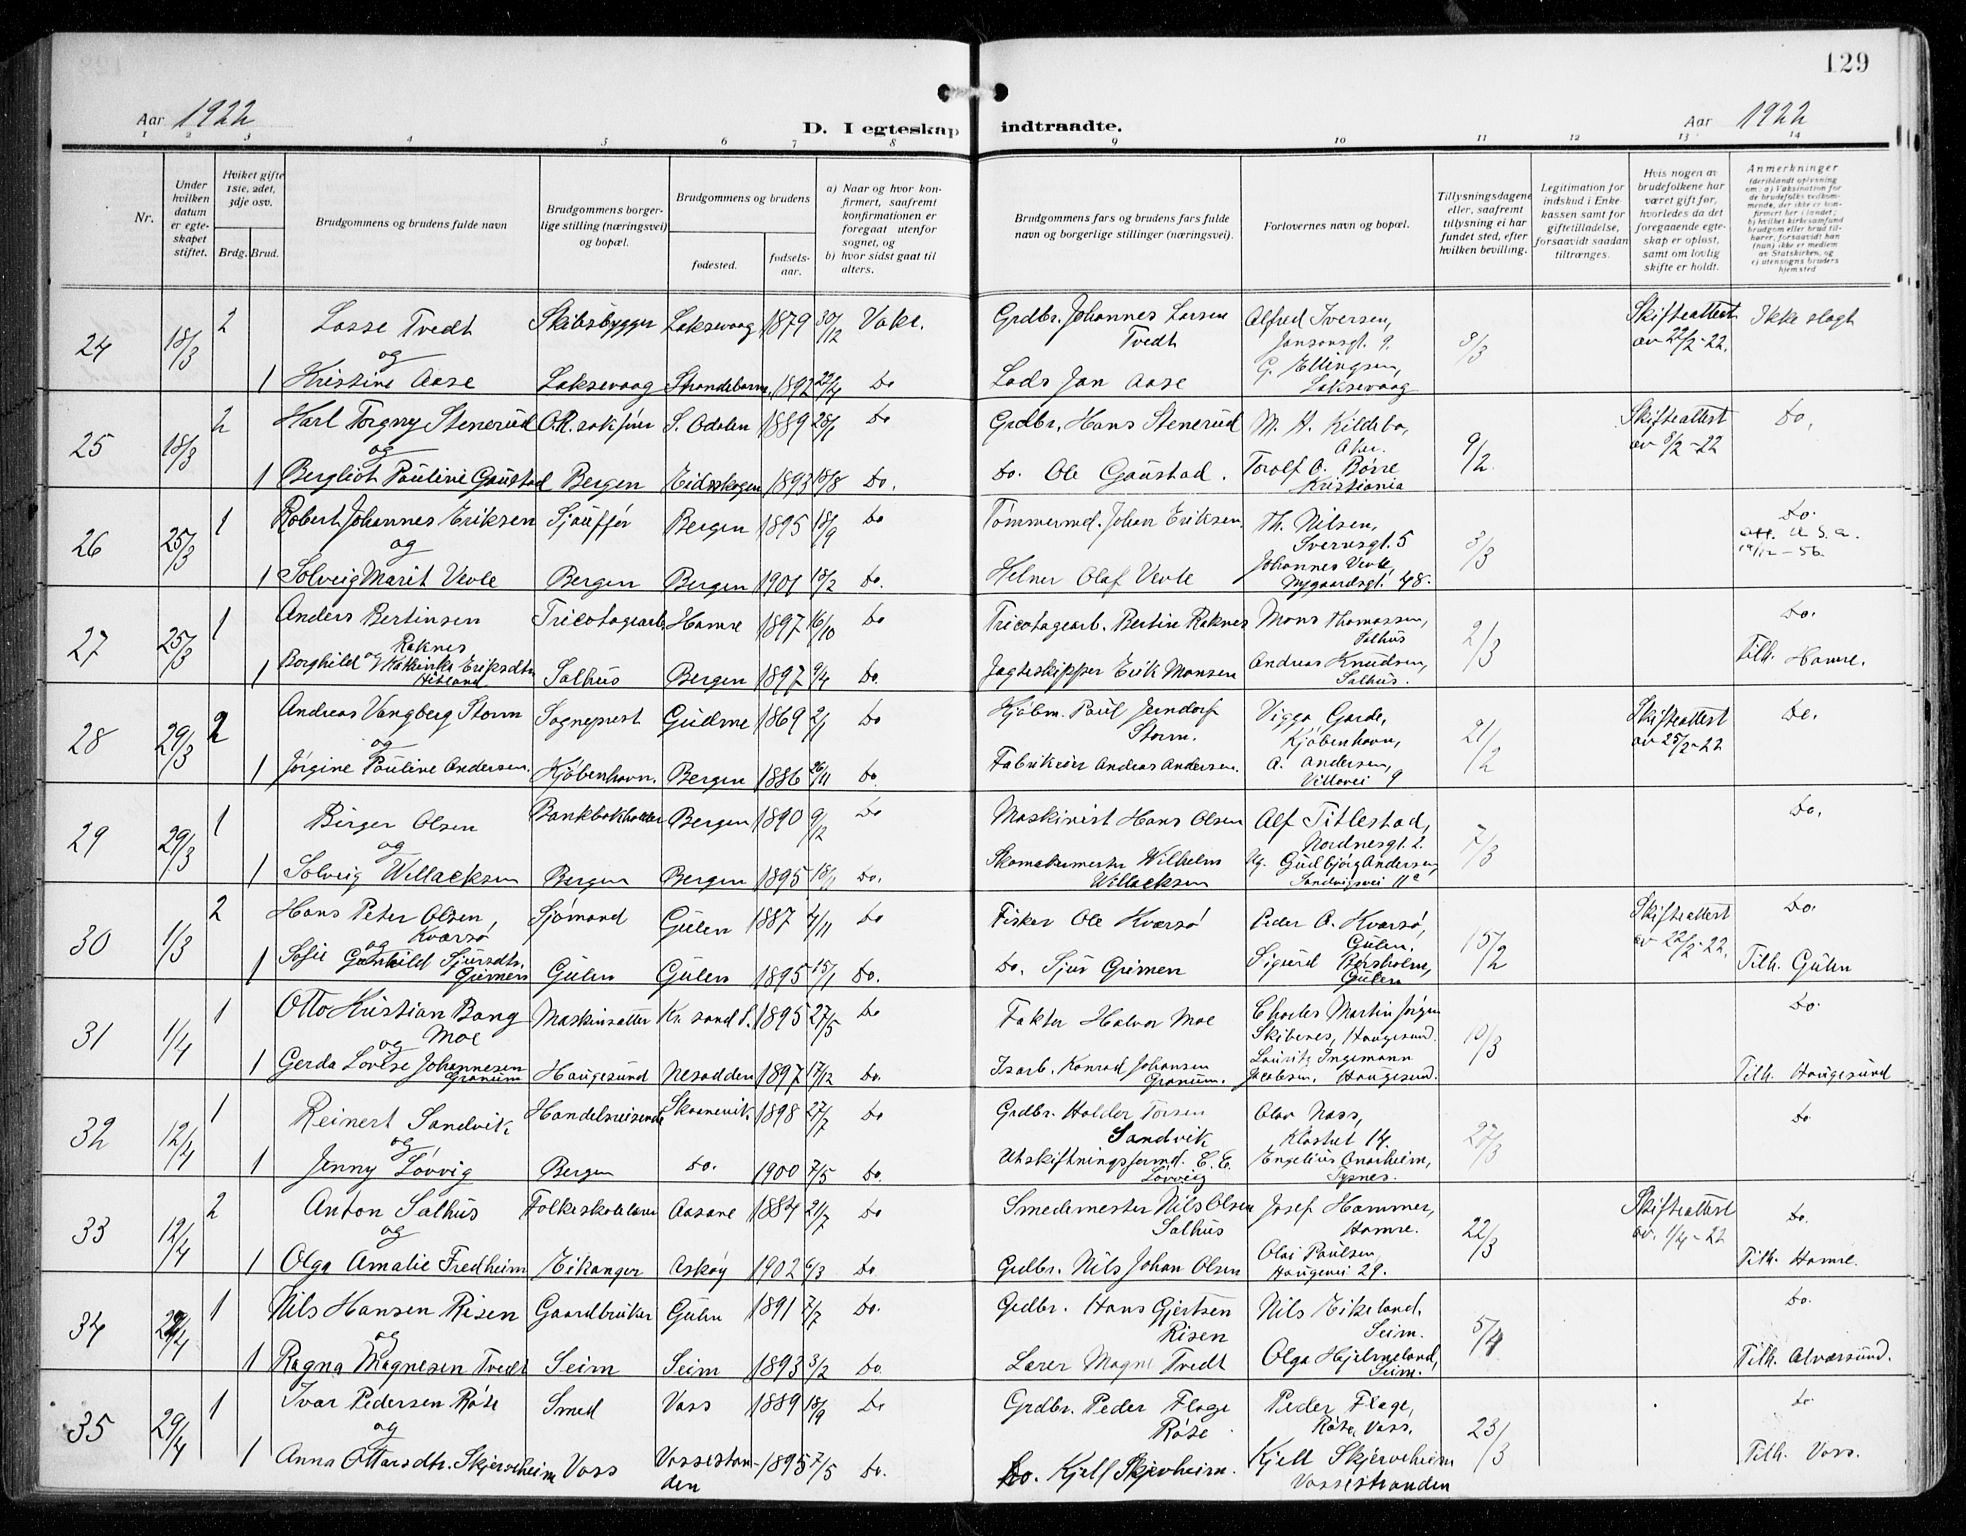 129
Aar 1922
D. I egteskap indtraadte.
Aar 1922
1 2 3 4 5 6 7 8 9 10 11 12 13 14
Nr.
Under hvilken datum er egteskapet stiftet.
Hviket gifte 1ste, 2det, 3dje osv.
Brdg. Brud.
Brudgommens og brudens fulde navn
Brudgommens borgerlige stilling (næringsvei) og bopæl.
Brudgommens og brudens
fødested.
fødselsaar.
a) Naar og hvor konfirmert, saafremt konfirmationen er foregaat utenfor sognet, og
b) hvor sidst gaat til alters.
Brudgommens fars og brudens fars fulde navn og borgerlige stillinger (næringsvei).
Forlovernes navn og bopæl.
Tillysningsdagene eller, saafremt tillysning ei har fundet sted, efter hvilken bevilling.
Legitimation for indskud i Enkekassen samt for giftetilladelse, forsaavidt saadan tiltrænges.
Hvis nogen av brudefolkene har været gift før, hvorledes da det foregaaende egteskap er opløst, samt om lovlig skifte er holdt.
Anmerkninger (deriblandt oplysning om: a) Vaksination for de brudefolks vedkommende, der ikke er konfirmert her i landet; b) hvilket kirkesamfund brudgom eller brud tilhører, forsaavidt han (hun) ikke er medlem av Statskirken, og c) utensogns bruders hjemsted
24 18/3 2 Lasse Tvedt Skibsbygger Laksevaag 1879 30/12 Vake. Grdbr. Johannes Larsen Tvedt Alfred Iversen, Jansonsgt. 9. 8/3 Skifteattest av 22/2-22. Ikke slegt
og
1 Kristine Aase Laksevaag Strandebarm 1892 22/4 Do Lods Jan Aase G. Ellingsen, Laksevaag
25 18/3 2 Karl Torgny Stenerud O.R.sakfører S. Odalen 1889 28/1 Do Grdbr. Hans Stenerud M. H. Kildebo, Aker. 9/2 Skifteattest av 8/2-22 Do.
og
1 Bergliot Pauline Gaustad Bergen Eidsskogen 1893 18/8 Do. Do. Ole Gaustad. Torolf A. Börre Kristiania
26 25/3 1 Robert Johannes Eriksen Sjauffør Bergen 1895 18/9 Do Tömmermd. Johan Eriksen Th. Nilsen, Sverresgt. 5 3/3 Do. att. U.S.A. 19/12-56.
og
1 Solveig Marit Vevle Bergen Bergen 1901 18/2 Do. Helner Olaf Vevle Johannes Vevle, Nygaardsgt. 48.
27 25/3 1 Anders Bertinsen Raknes Tricotagearb. Hamre 1897 16/10 Do Tricotagearb. Bertin Raknes Mons Thomassen, Salhus 2/3 Do.
1 Borghild og Katinka Eriksdtr. Hitland Salhus Bergen 1897 9/4 Do. Jagteskipper Erik Monsen Andreas Knudsen, Salhus. Tilh. Hamre.
28 29/3 2 Andreas Vangberg Storm Sogneprest Gudme 1869 2/1 Do Kjøbm. Paul Jerndorf Storm. Viggo Garde, Kjøbenhavn, 21/2 Skifteattest av 25/2-22 Do.
og
1 Jörgine Pauline Andersen. Kjöbenhavn. Bergen 1886 26/11 Do. Fabrikeier Andreas Andersen. A. Andersen, Villavei 9
29 29/3 1 Birger Olsen Bankbokholder Bergen 1890 9/12 Do Maskinist Hans Olsen Alf Titlestad, Nordnesgt. 2. 7/3 Do.
og
1 Solveig Willacksen Bergen Bergen 1895 18/1 Do. Skomakermester Wilhelm Willacksen Gudbjörg Andersen, Sandviksvei 11a
30 1/3 2 Hans Peter Olsen, Kværsø Sjömand Gulen 1887 4/11 Do Fisker Ole Kværsø Peder A. Kværsø, Gulen. 15/2 Skifteattest av 22/2-22. Do.
og
1 Sofie Gunhild Sjursdtr. Grimen Gulen Gulen 1895 15/1 Do. Do. Sjur Grimen Sigurd Börsholm, Gulen Tilh. Gulen
31 1/4 1 Otto Kristian Bang Moe Maskinsetter Kr. sand S. 1895 27/5 Do Faktor Halvor Moe Charles Martin Jörgen Skibenes, Haugesund. 10/3 Do.
og
1 Gerda Lovise Johannesen Granum Haugesund Nesodden 1897 17/12 Do. Isarb. Konrad Johansen Granum. Lauritz Ingemann Jacobsen, Haugesund. Tilh. Haugesund
32 12/4 1 Reinert Sandvik Handelsreisende Skaanevik 1898 27/7 Do Grdbr. Halder Torsen Sandvik Olav Nass, Klostret 14. 27/3 Do
og
1 Jenny Lövvig Bergen Do. 1900 7/5 Do Utskiftningsformd. C. E. Lövvig Engelius Onarheim, Tysnes.
33 12/4 2 Anton Salhus Folkeskolelærer Aasane 1884 21/7 Do Smedemester Nils Olsen Salhus Josef Hammer, Hamre. 22/3 Skifteattest av. 1/4-22 Do.
og
1 Olga Amalie Fredheim Eikanger Askøy 1902 6/3 Do. Grdbr. Nils Johan Olsen Olai Paulsen Haugevei 29. Tilh. Hamre.
34 29/4 1 Nils Hansen Risen Gaardbruker Gulen 1891 7/7 Do. Grdbr. Hans Gjertsen Risen Nils Eikeland, Seim. 5/4 Do.
og
1 Ragna Magnesen Tvedt Seim Seim 1893 3/2 Do Lærer Magne Tvedt Olga Hjelmeland, Seim. Tilh. Alversund.
35 29/4 1 Ivar Pedersen Röte Smed Voss 1889 18/9 Do Grdbr. Peder Flage Röte Peder Flage, Röte, Voss. 23/3 Do
og
1 Anna Ottarsdtr. Skjerveheim Voss Vossestranden 1895 7/5 Do. Do. Kjell Skjerveheim. Kjell Skjerveheim Vossestranden Tilh. Voss.